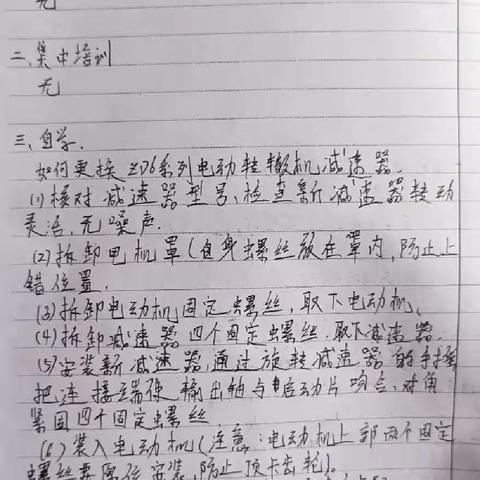 无
二、集中培训
无
三、自学.
如何更换ZD6系列电动转辙机减速器.
(1)核对减速器型号,检查新减速器转动
灵活,无噪声.
(2)拆卸电机罩(自身螺丝放在罩内,防止上
错位置.
(3)拆卸电动机固定螺丝,取下电动机.
(4)拆卸减速器四个固定螺丝,取下减速器.
(5)安装新减速器,通过旋转减速器的手摇
把连接端使输出轴与启动片吻合,对角
紧固四个固定螺丝
(6)装入电动机(注意:电动机上部两个固定
螺丝要原位安装,防止顶卡齿轮).